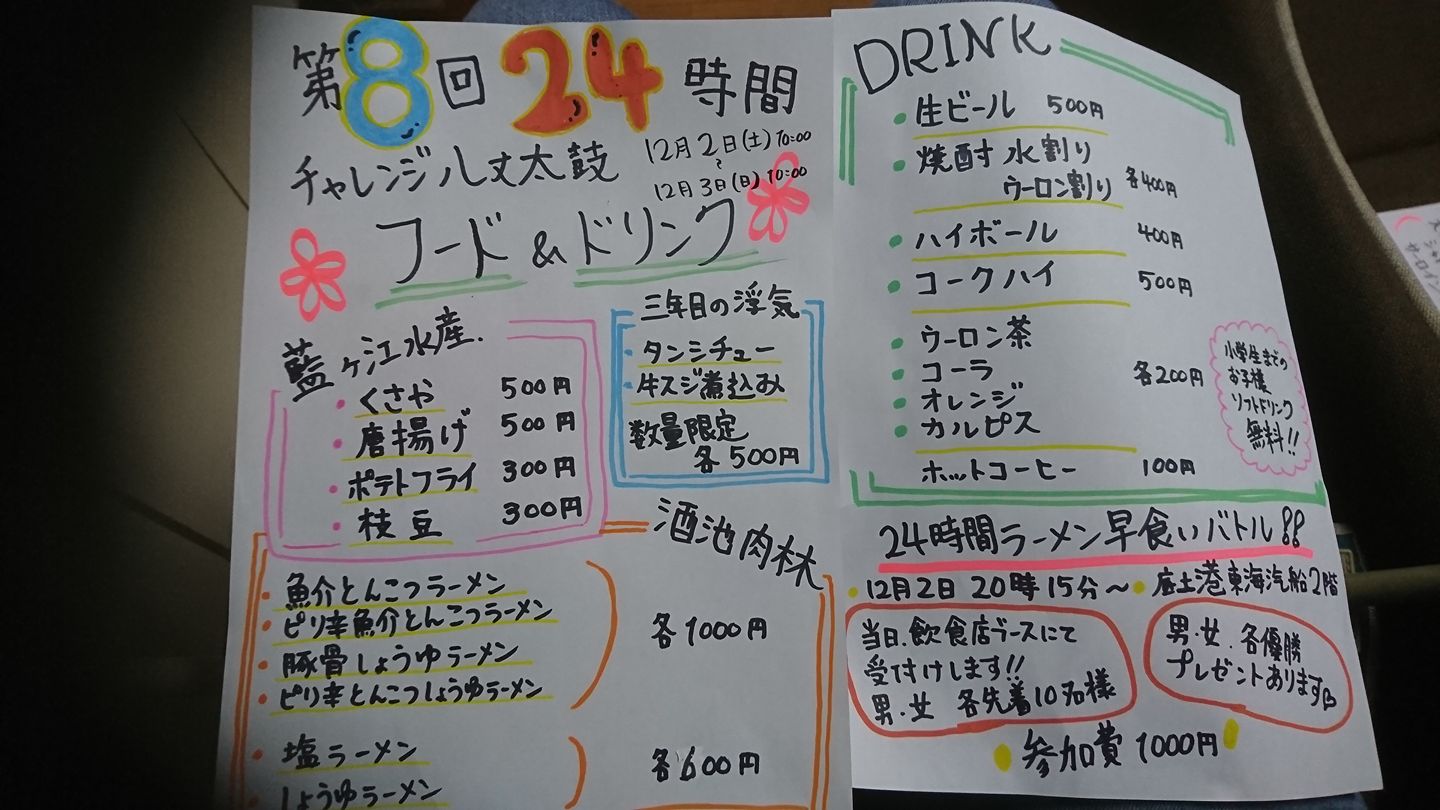 第8回24時間
チャレンジ八丈太鼓
12月2日(土)10:00
~
12月3日(日)10:00
フード&ドリンク
藍ヶ江水産.
・くさや 500円
・唐揚げ 500円
・ポテトフライ 300円
・枝豆 300円
三年目の浮気
・タンシチュー
・牛スジ煮込み
数量限定
各500円
酒池肉林
・魚介とんこつラーメン
・ピリ辛魚介とんこつラーメン
・豚骨しょうゆラーメン
・ピリ辛とんこつしょうゆラーメン
各1000円
・塩ラーメン
・しょうゆラーメン
各600円
DRINK
・生ビール 500円
・焼酎 水割り
ウーロン割り 各400円
・ハイボール 400円
・コークハイ 500円
・ウーロン茶
・コーラ
・オレンジ
・カルピス
各200円
ホットコーヒー 100円
小学生までの
お子様
ソフトドリンク
無料!!
24時間ラーメン早食いバトル!!
・12月2日 20時15分~・底土港東海汽船2階
当日.飲食店ブースにて
受付けします!!
男・女 各先着10名様
男・女 各優勝
プレゼントあります
・参加費 1000円・